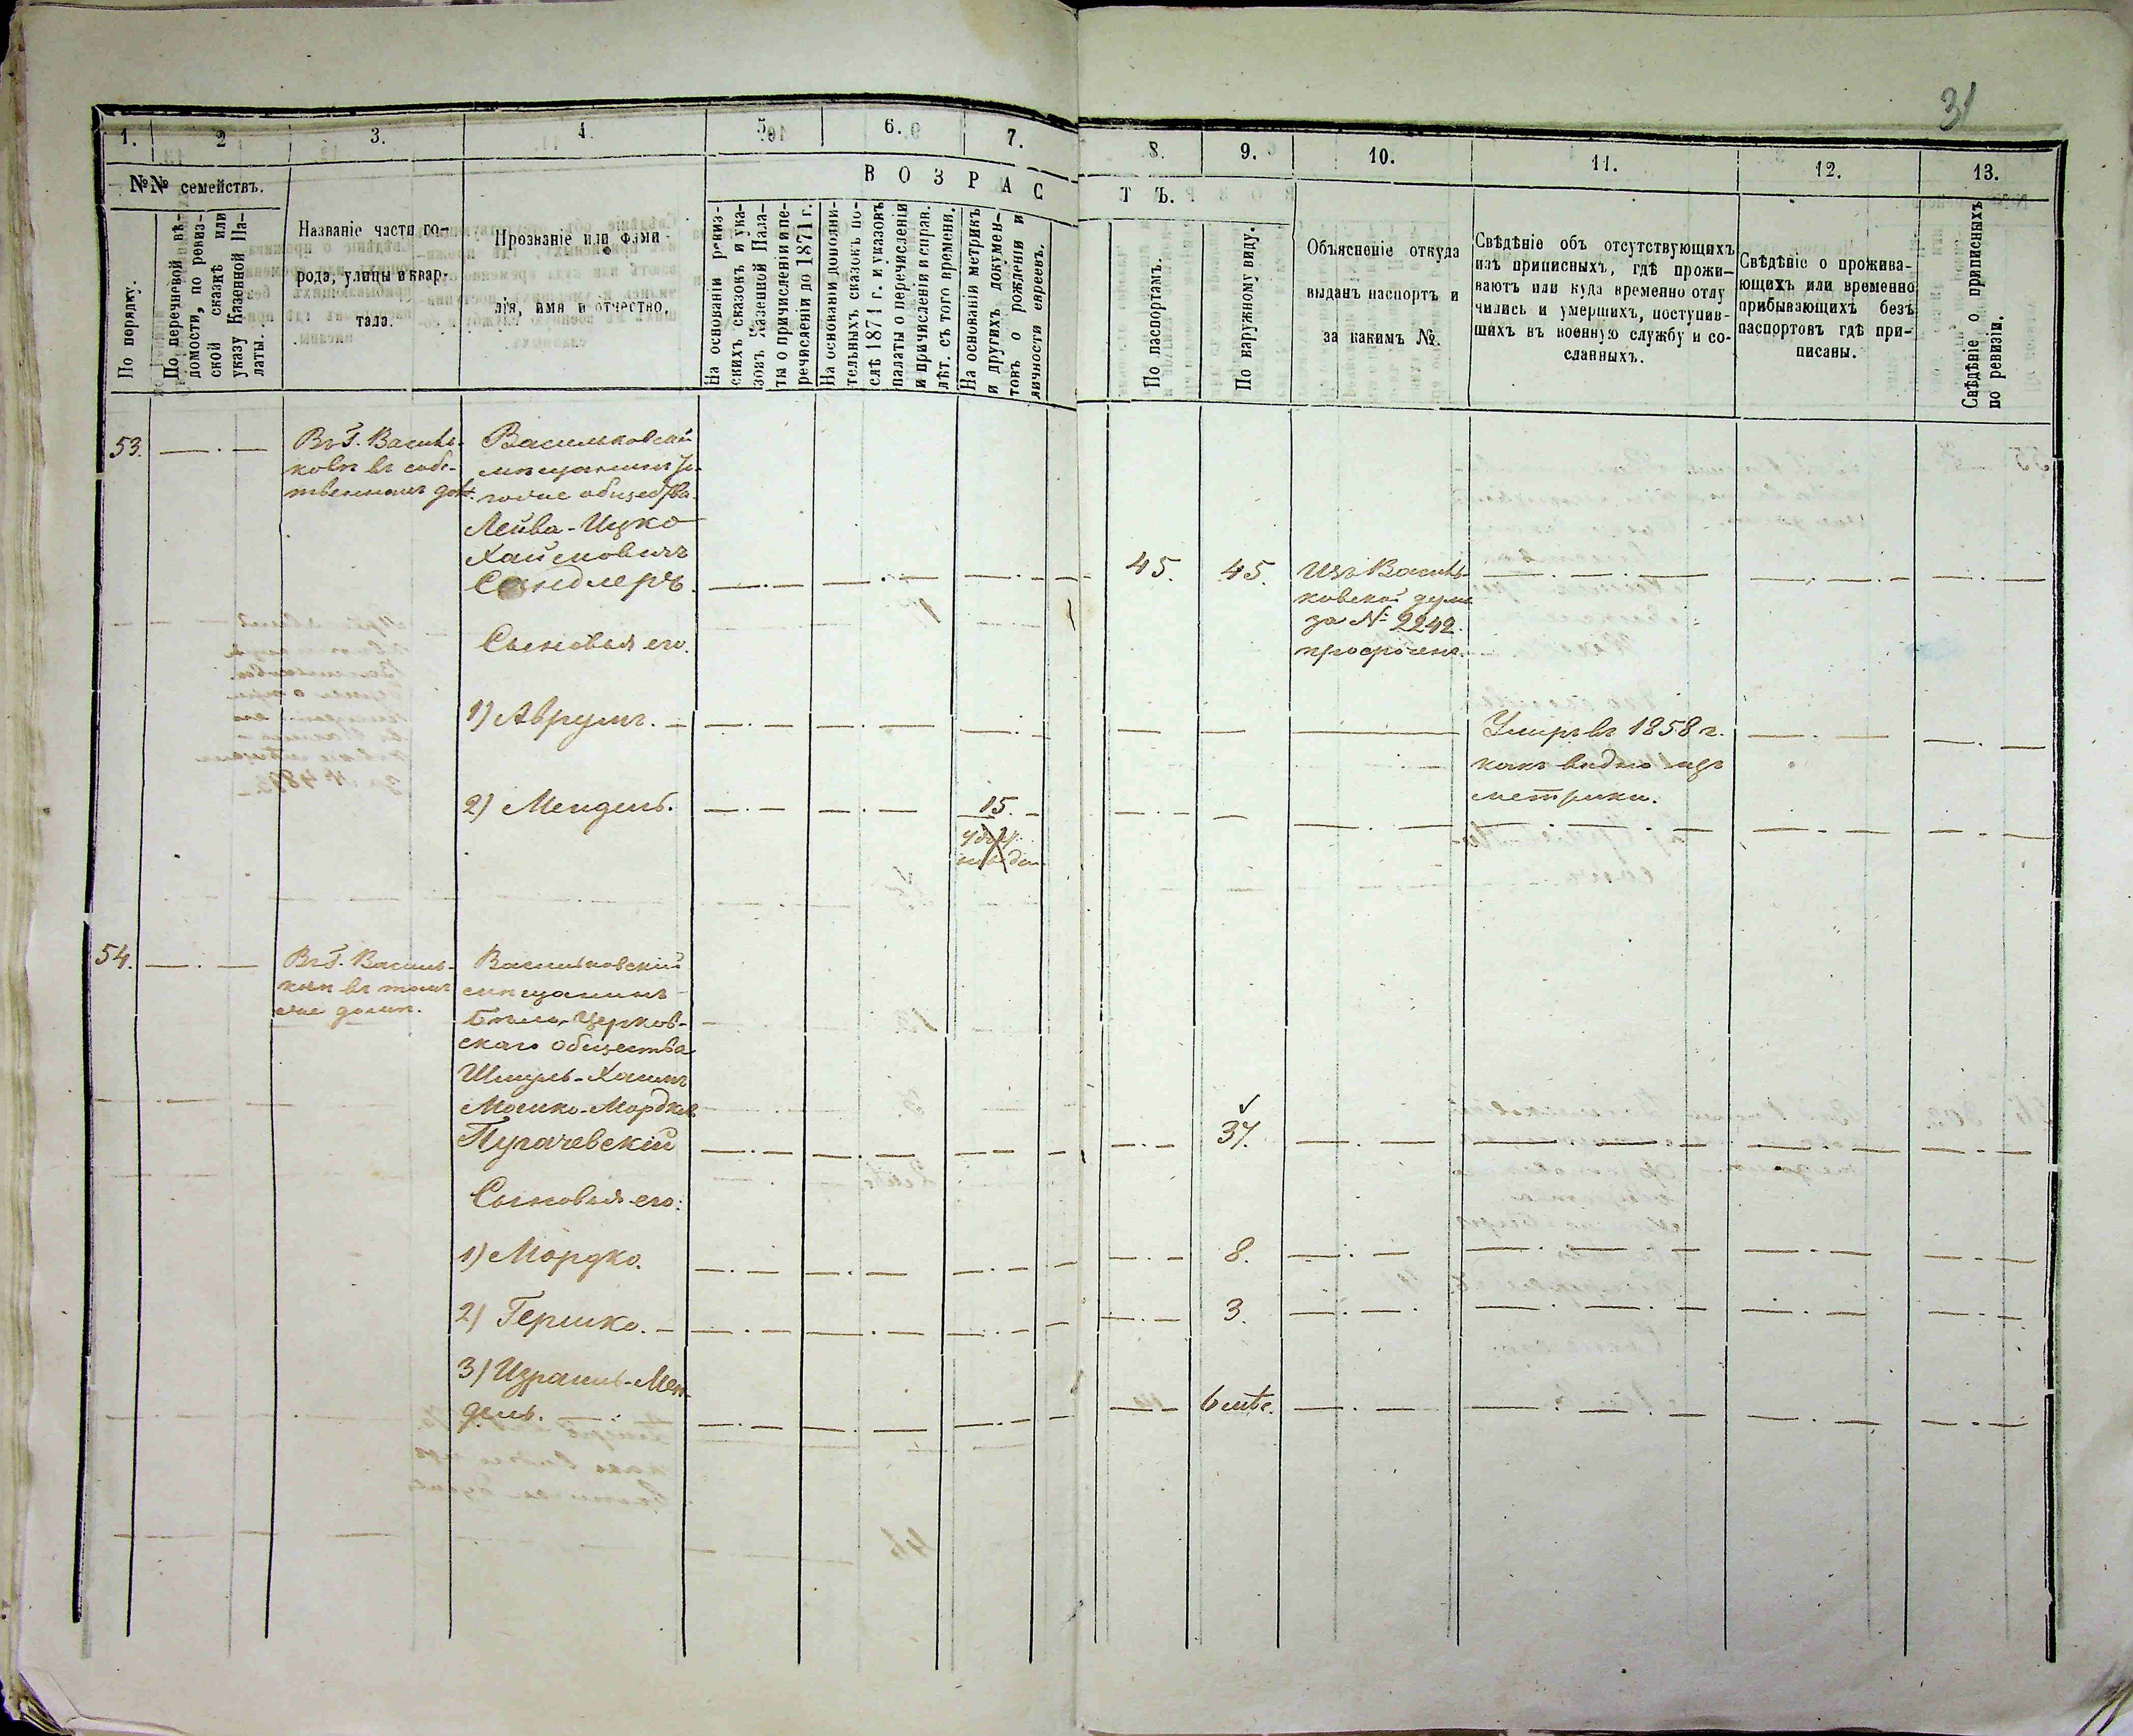 31
1. 2 3. 4. 5. 6. 7. 8. 9. 10. 11. 12. 13.
№№ семействъ.
По порядку.
По перечневой вѣ-
домости, по ревиз-
ской сказкѣ или
указу Казенной Па-
латы.
Названіе части го-
рода, улицы и квар-
тала.
Прозваніе или фами-
лія, имя и отчество.
ВОЗРАСТЪ.
На основаніи ревиз-
скихъ сказокъ и ука-
зовъ Казенной Пала-
ты о причисленіи и пе-
речисленіи до 1871 г.
На основаніи дополни-
тельныхъ сказокъ по-
слѣ 1871 г. и указовъ
палаты о перечисленіи
и причисленіи и справ.
лѣт. съ того времени.
На основаніи метрикъ
и другихъ докумен-
товъ о рожденіи и
личности евреевъ.
По паспортамъ.
По наружному виду.
Объясненіе откуда
выданъ паспортъ и
за какимъ №.
Свѣдѣніе объ отсутствующихъ
изъ приписныхъ, гдѣ прожи-
ваютъ или куда временно отлу
чились и умершихъ, поступив-
шихъ въ военную службу и со-
сланныхъ.
Свѣдѣніе о прожива-
ющихъ или временно
прибывающихъ безъ
паспортовъ гдѣ при-
писаны.
Свѣдѣніе о приписныхъ
по ревизіи.
53.
Въ Г. Василь-
ковѣ въ собс-
твенномъ дом.
Васильковскій
мѣщанинъ
того же общества
Лейба-Ицко
Хаимовичъ
Сандлеръ.
45. 45.
Изъ Василь-
ковской думы
за № 2242.
просрочен.
Сыновья его.
1) Аврумъ.
Умеръ въ 1858 г.
какъ видно изъ
метрики.
2) Мендель.
15.
54.
Въ Г. Василь-
ковѣ въ томъ
же домѣ.
Васильковскій
мѣщанинъ
Бѣло-Церков-
скаго общества
Шмуль-Хаимъ
Мошко-Мордков.
Пугачевскій
37.
Сыновья его:
1) Мордко.
8.
2) Гершко.
3.
3) Израиль-Мен-
дель.
6 мѣс.